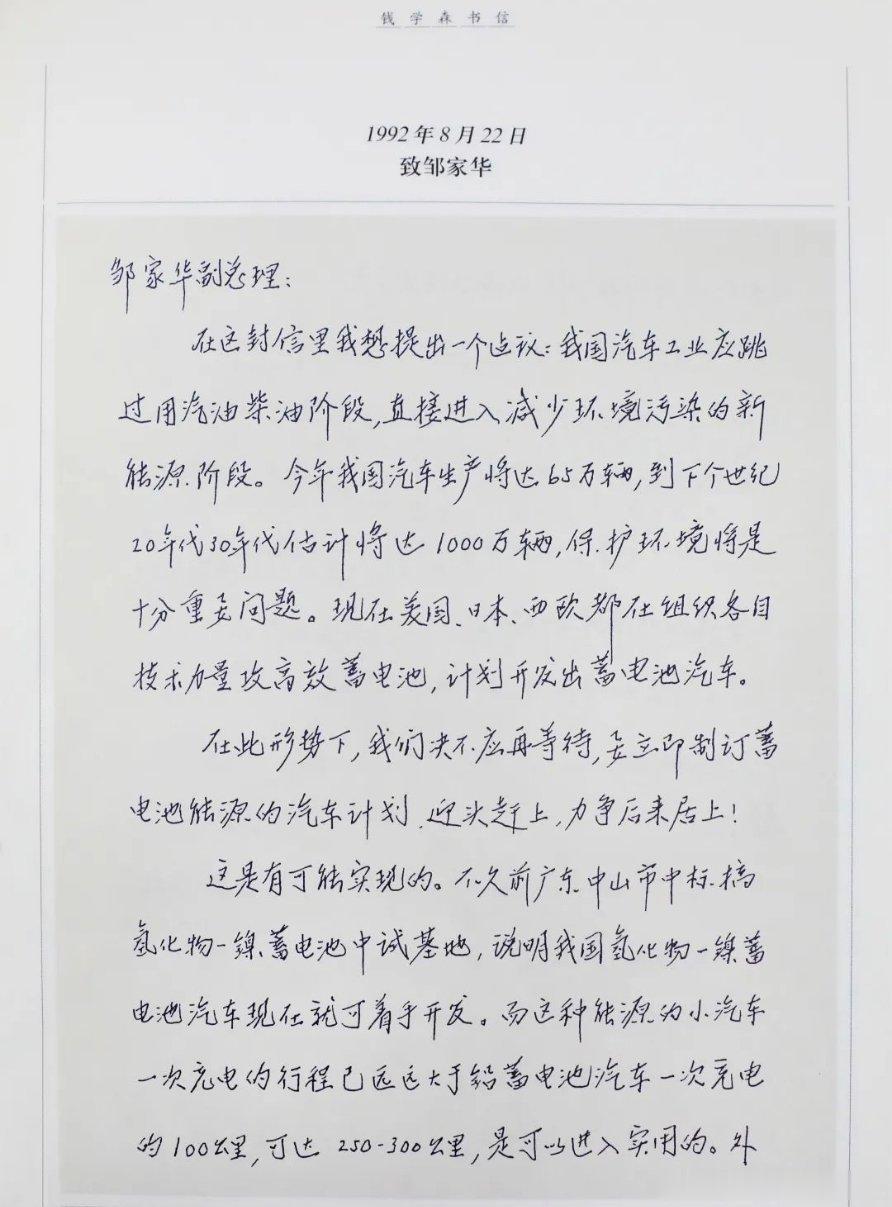 钱学森书信
1992年8月22日
致邹家华
邹家华副总理：
在这封信里我想提出一个建议：我国汽车工业应跳
过用汽油柴油阶段，直接进入减少环境污染的新
能源阶段。今年我国汽车生产将达65万辆，到下个世纪
20年代30年代估计将达1000万辆，保护环境将是
十分重要问题。现在美国、日本、西欧都在组织各自
技术力量攻高效蓄电池，计划开发出蓄电池汽车。
在此形势下，我们决不应再等待，要立即制订蓄
电池能源的汽车计划，迎头赶上，力争后来居上！
这是有可能实现的。不久前广东中山市中标搞
氢化物一镍蓄电池中试基地，说明我国氢化物一镍蓄
电池汽车现在就可着手开发。而这种能源的小汽车
一次充电的行程已远远大于铅蓄电池汽车一次充电
的100公里，可达250-300公里，是可以进入实用的。外